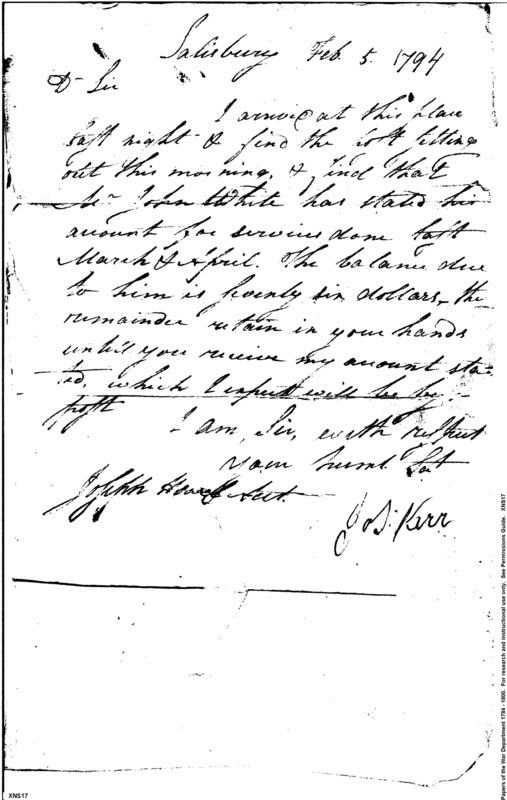 Salisbury Feb. 5. 1794
Dr Sir
I arrived at this place
last night & find the
out this morning, & find that
Mr John White has stated his
account for services done last
March & April. The balance due
to him is seventy six dollars, the
remainder retain in your hands
until you receive my account sta-
ted, which I expect will be by
post
I am, Sir, with respect
your huml Sert
Joseph Howell
Jos. Kerr
XNS17
Papers of the War Department 1784 - 1800. For research and instructional use only. See Permissions Guide. XNS17